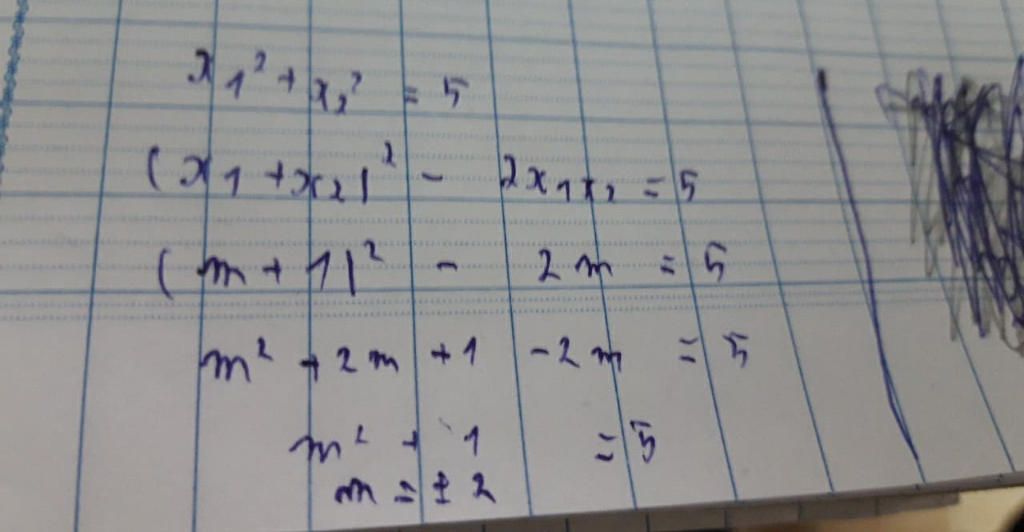 x₁² + x₂² = 5
(x₁ + x₂)² - 2x₁x₂ = 5
(m + 1)² - 2m = 5
m² + 2m + 1 - 2m = 5
m² + 1 = 5
m = ± 2